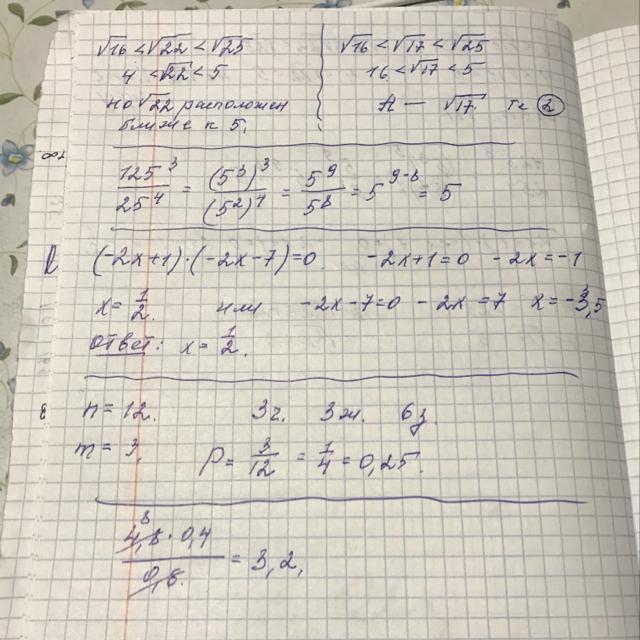 √16 < √22 < √25
4 < √22 < 5
но √22 расположен
ближе к 5.
√16 < √17 < √25
16 < √17 < 5
A — √17 те ②
125³/25⁴ = (5³)³/(5²)⁴ = 5⁹/5⁸ = 5⁹⁻⁸ = 5
(-2x+1)·(-2x-7)=0. -2x+1=0 -2x=-1
x = 1/2. или -2x-7=0 -2x=7 x=-3,5
ответ: x = 1/2.
n = 12. 3г. 3ж. 6з.
m = 3, P = 3/12 = 1/4 = 0,25.
8
4,8 · 0,4 / 0,6 = 3,2,